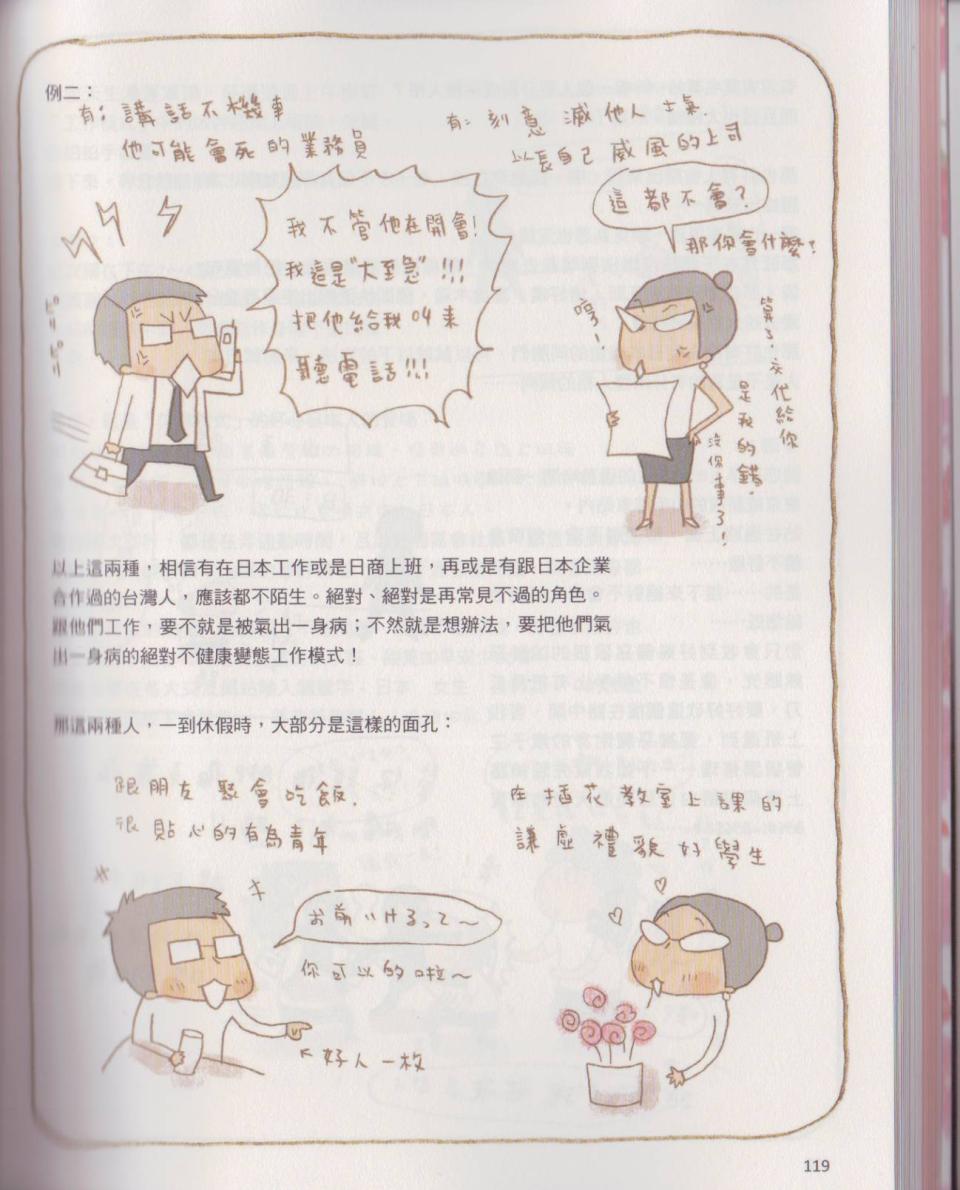 例二：
有: 講話不機車
他可能會死的業務員
有: 刻意滅他人士氣
以長自己威風的上司
我不管他在開會!
我這是"大至急"!!!
把他給我叫來
聽電話!!!
ピリピリ
這都不會?
那你會什麼?
哼!
算了,交代給你
是我的錯.
沒你事了
以上這兩種，相信有在日本工作或是日商上班，再或是有跟日本企業
合作過的台灣人，應該都不陌生。絕對、絕對是再常見不過的角色。
跟他們工作，要不就是被氣出一身病；不然就是想辦法，要把他們氣
出一身病的絕對不健康變態工作模式！
那這兩種人，一到休假時，大部分是這樣的面孔：
跟朋友聚會吃飯.
很貼心的有為青年
お前いけるって～
你可以的啦～
好人一枚
在插花教室上課的
謙虛禮貌好學生
119